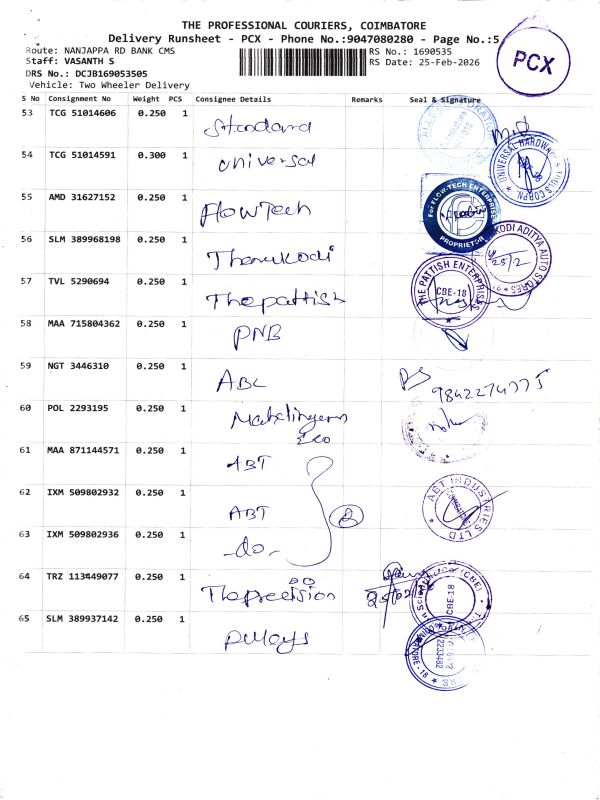 THE PROFESSIONAL COURIERS, COIMBATORE
Delivery Runsheet - PCX - Phone No.:9047080280 - Page No.:5
Route: NANJAPPA RD BANK CMS RS No.: 1690535
Staff: VASANTH S RS Date: 25-Feb-2026
DRS No.: DCJB169053505
Vehicle: Two Wheeler Delivery
PCX
S No Consignment No Weight PCS Consignee Details Remarks Seal & Signature
53 TCG 51014606 0.250 1 Standard
54 TCG 51014591 0.300 1 Universal
UNIVERSAL HARDWARE & TOOLS CORPN.
55 AMD 31627152 0.250 1 FlowTech
For FLOW-TECH ENTERPRISES
PROPRIETOR
56 SLM 389968198 0.250 1 Thenukodi
ADITYA AUTO STORES
25/2
57 TVL 5290694 0.250 1 The pattish
THE PATTISH ENTERPRISES
CBE-18
58 MAA 715804362 0.250 1 PNB
59 NGT 3446310 0.250 1 ABC
9842274775
60 POL 2293195 0.250 1
61 MAA 871144571 0.250 1 ABT
62 IXM 509802932 0.250 1 ABT
ABT INDUSTRIES LTD
63 IXM 509802936 0.250 1 -do-
64 TRZ 113449077 0.250 1 The precision
CBE-18
65 SLM 389937142 0.250 1
2233482